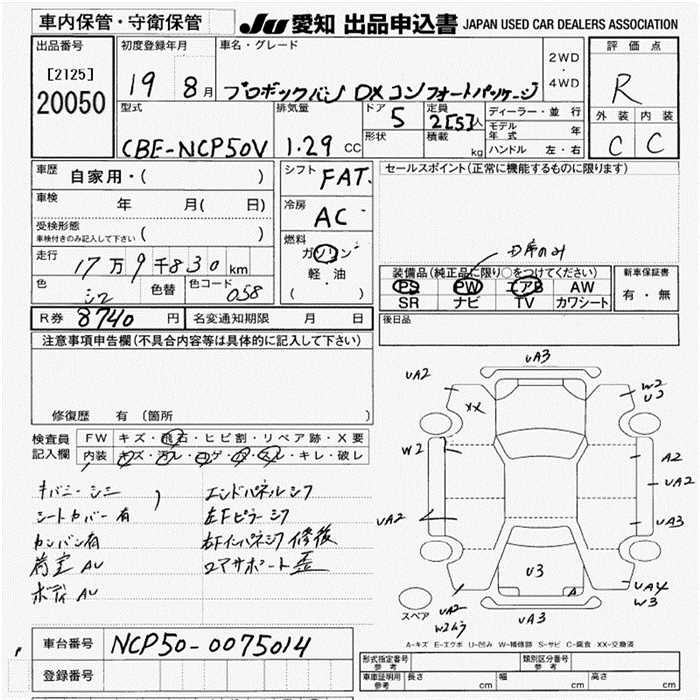 車内保管・守衛保管 JU 愛知 出品申込書 JAPAN USED CAR DEALERS ASSOCIATION
出品番号 初度登録年月 車名・グレード 2WD・4WD 評価点
[2125] 20050 19 8月 プロボックスバン DXコンフォートパッケージ R
型式 排気量 ドア 5 定員 2[5]人 ディーラー・並行 外装 内装
CBE-NCP50V 1.29 CC 形状 積載 kg モデル年式 年 C C
ハンドル 左・右
車歴 自家用・( ) シフト FAT. セールスポイント(正常に機能するものに限ります)
車検 年 月( 日) 冷房 AC
受検形態 車検付きのみ記入して下さい ( ) 燃料 ガソリン 軽・油 ( )
走行 17万9千830km
色 シロ 色替 色コード 058
装備品(純正品に限り○をつけてください) 新車保証書
PS PW エアB AW 有・無
SR ナビ TV カワシート
R券 8740円 名変通知期限 月 日 後日品
注意事項申告欄(不具合内容等は具体的に記入して下さい)
修復歴 有(箇所 )
検査員記入欄 FW キズ・飛石・ヒビ割・リペア跡・X要
内装 キズ・汚レ・コゲ・穴・スレ・キレ・破レ
シートカバー有 左Fピラーシワ
カンバン有 修復
荷室AU ロアサポート歪
ボディAU
UA3
UA2 XX W2 U2
W2 A2
UA2
UA2 UA3
U3 A
UA4
W3
スペア UA2 UA3
A-キズ E-エクボ U-凹み W-補修跡 S-サビ C-腐食 XX-交換済
車台番号 NCP50-0075014
登録番号
形式指定番号参考 類別区分番号参考
車庫証明用参考 長さ cm 幅 cm 高さ cm